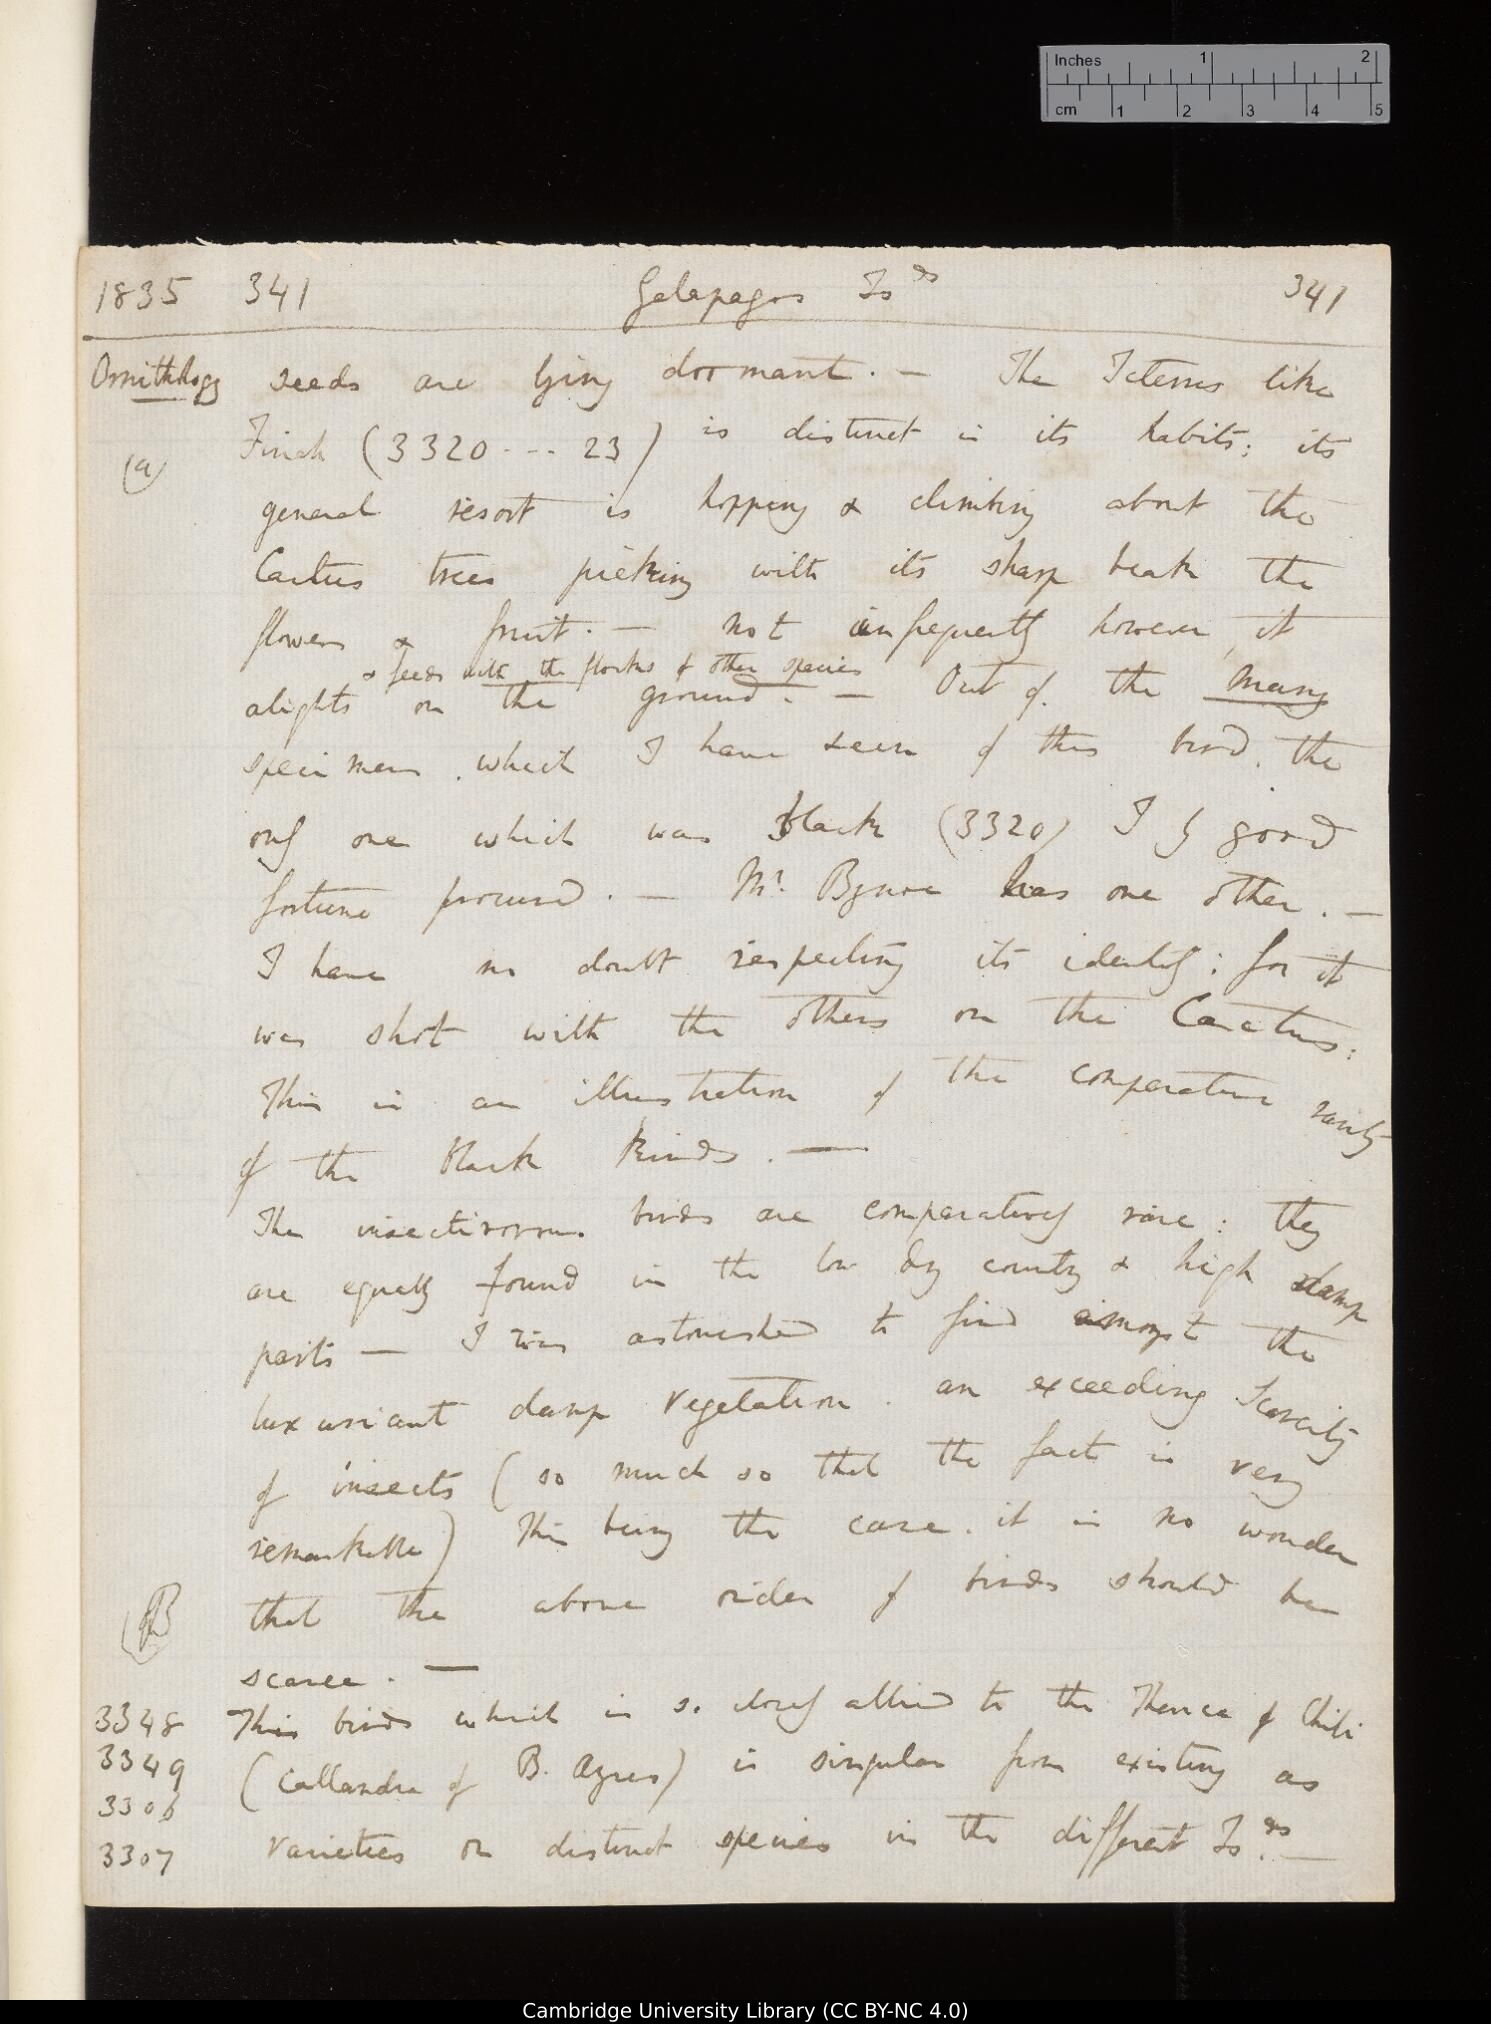 Inches 1 2
cm 1 2 3 4 5
1835 341 Galapagos Is ds 341
Ornithology seeds are lying dormant. — The Icterus like
Finch (3320 ... 23) is distinct in its habits; its
(a)
general resort is hopping & climbing about the
Cactus trees picking with its sharp beak the
flowers & fruit. — not infrequently however, it
& feeds with the flocks of other species
alights on the ground. — Out of the many
specimens, which I have seen of this bird, the
only one which was black (3320) I by good
fortune procured. — Mr. Bynoe has one other. —
I have no doubt respecting its identity; for it
was shot with the others on the Cactus:
This is an illustration of the comparative rarity
of the black kinds. —
The insectivorous birds are comparatively rare: they
are equally found in the low dry country & high damp
parts — I was astonished to find amongst the
luxuriant damp vegetation. an exceeding scarcity
of insects (so much so that the fact is very
remarkable) This being the case. it is no wonder
that the above order of birds should be
(B)
scarce. —
3348 This birds which is so closely allied to the Thenca of Chili
3349 (Callandra of B. Ayres) is singular from existing as
3306
3307 varieties or distinct species in the different Is. ds —
Cambridge University Library (CC BY-NC 4.0)